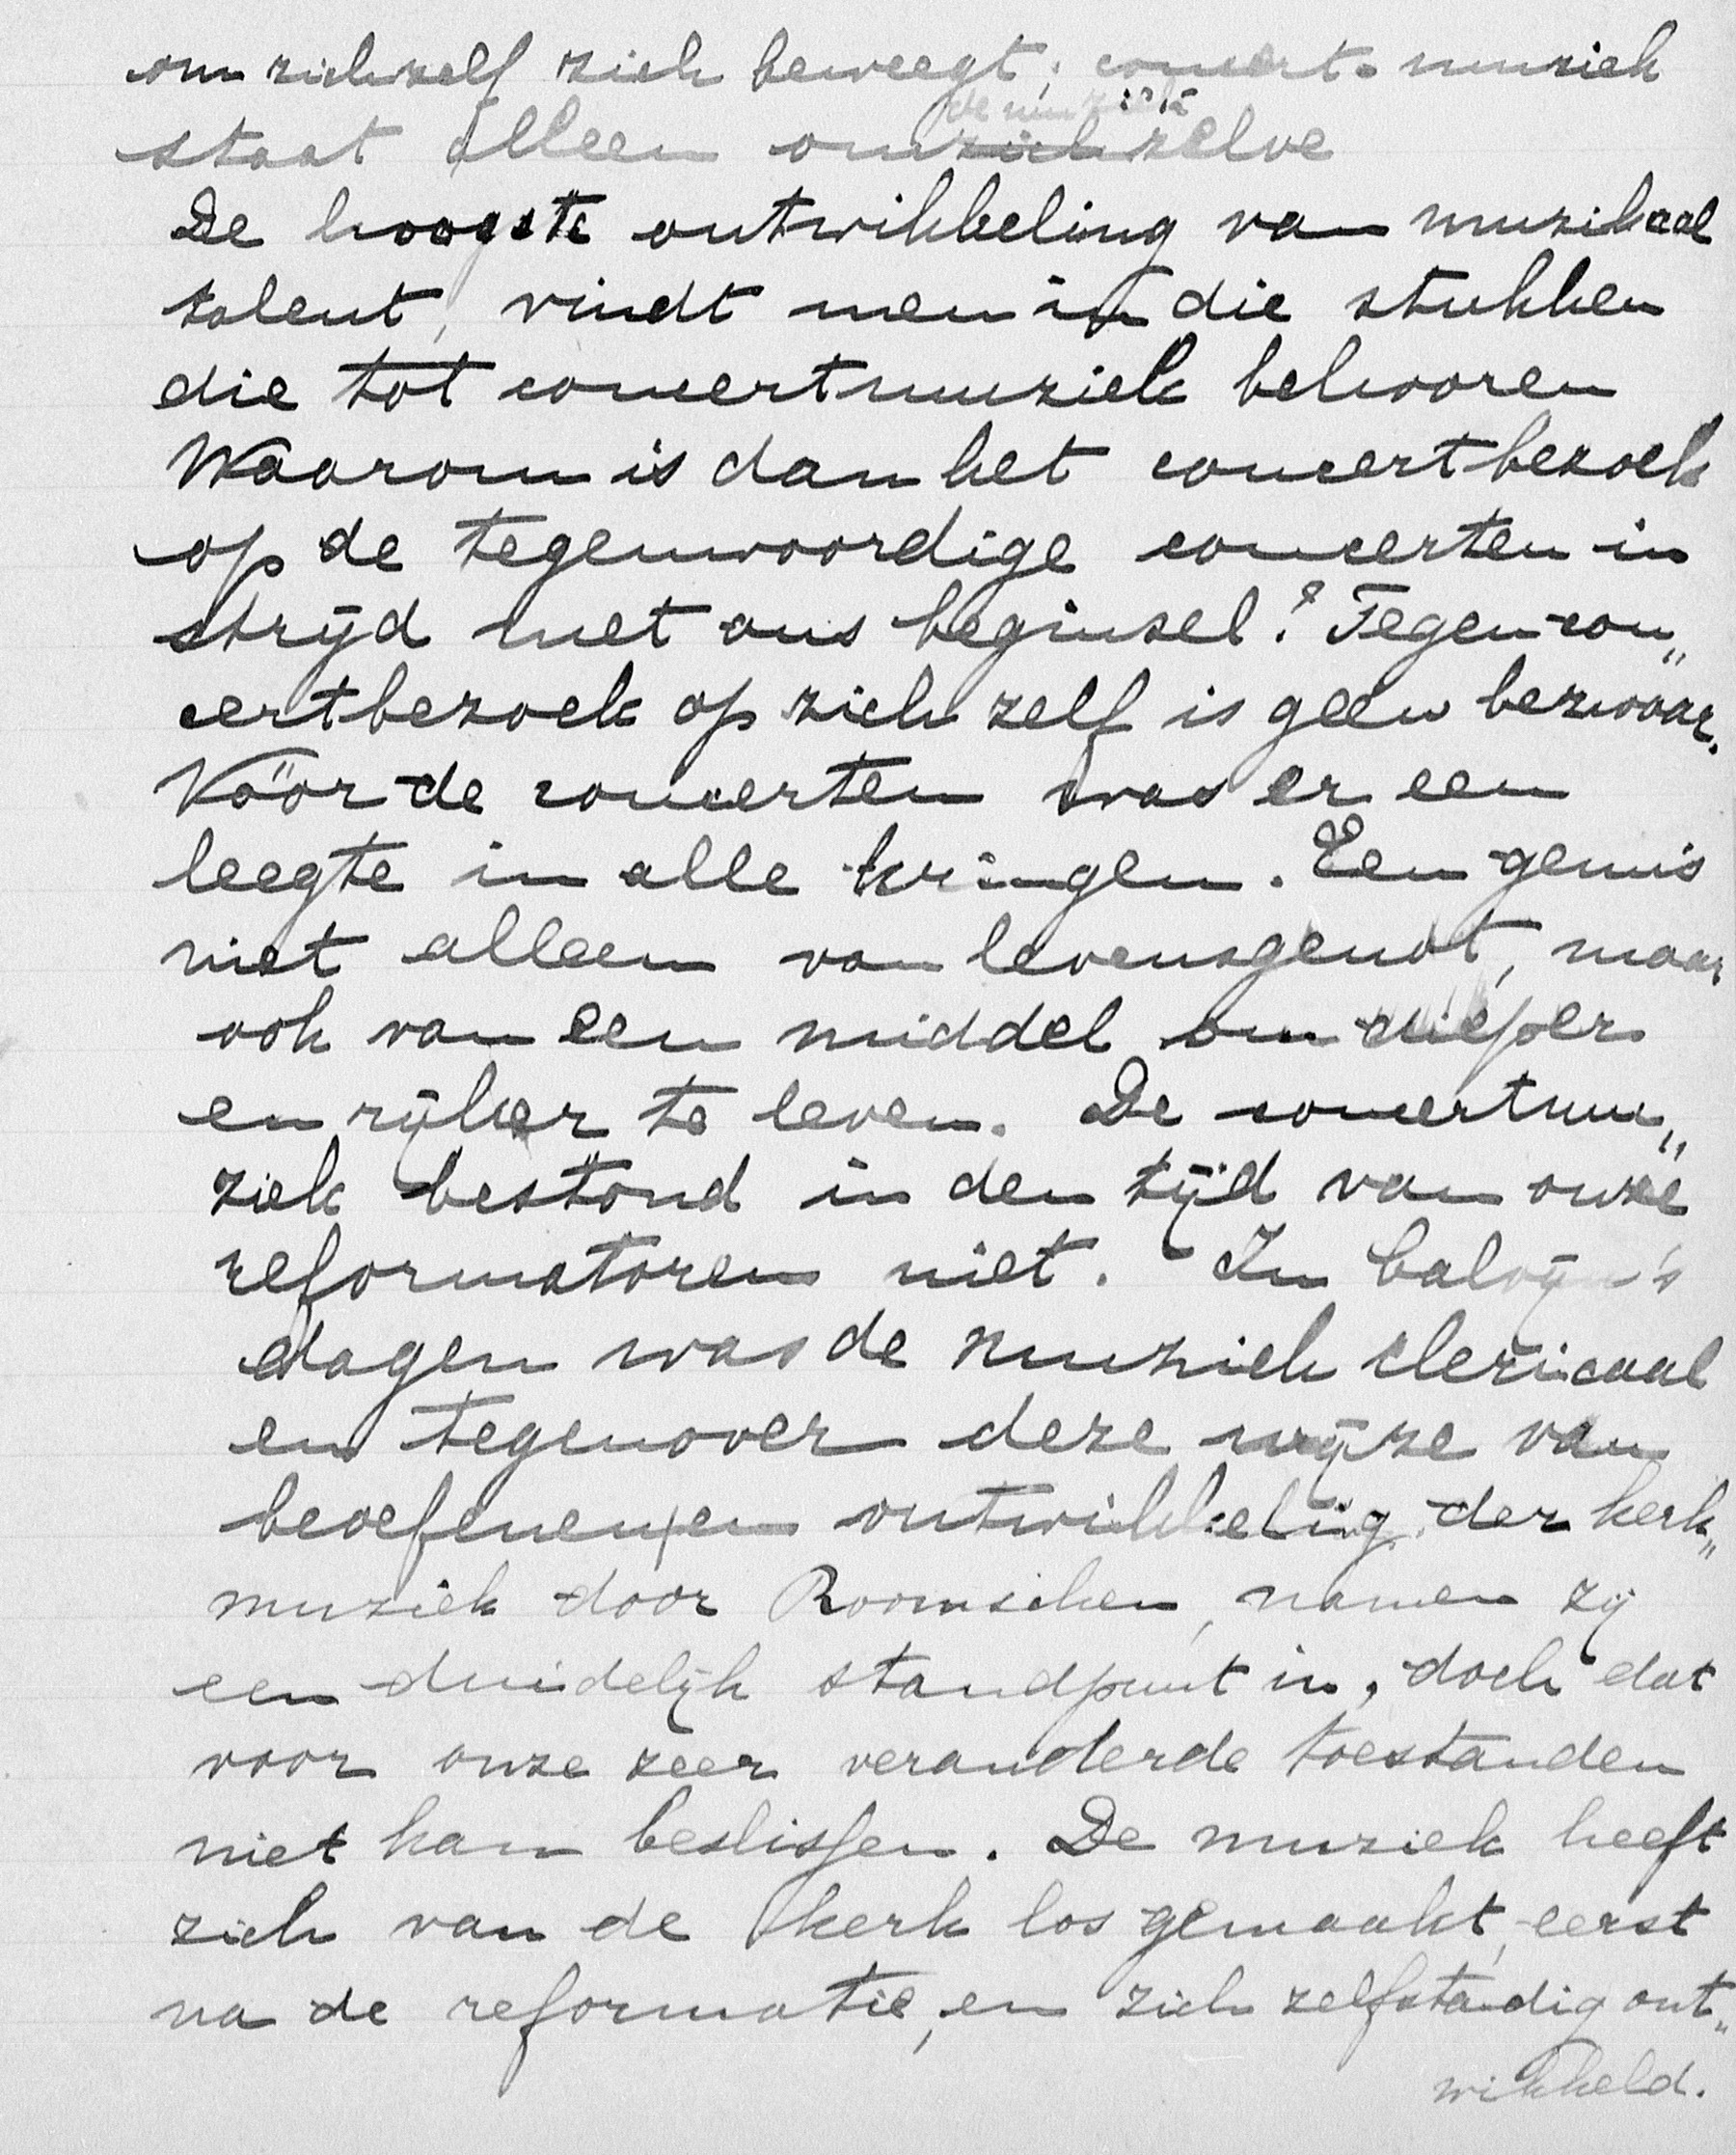 om zichzelf zich beweegt; concert-muziek
de muziek
staat alleen om zich zelve
De hoogste ontwikkeling van muzikaal
talent, vindt men in die stukken
die tot concertmuziek behooren
Waarom is dan het concertbezoek
op de tegenwoordige concerten in
strijd met ons beginsel? Tegen con„
certbezoek op zich zelf is geen bezwaar.
Vóór de concerten was er een
leegte in alle kringen. Een gemis
niet alleen van levensgenot, maar
ook van een middel om dieper
en rijker te leven. De concertmu„
ziek bestond in den tijd van onze
reformatoren niet. In Calvijn's
dagen was de muziek clericaal
en tegenover deze wijze van
beoefenen en ontwikkeling der kerk„
muziek door Roomschen, namen zij
een duidelijk standpunt in, doch dat
voor onze zeer veranderde toestanden
niet kan beslissen. De muziek heeft
zich van de kerk los gemaakt, eerst
na de reformatie, en zich zelfstandig ont„
wikkeld.